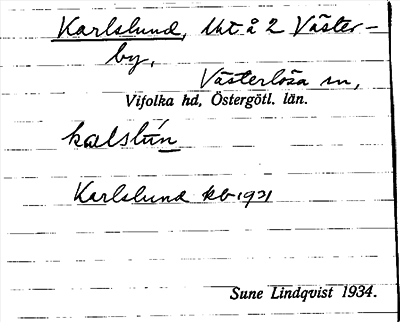 Karlslund, Uut å 2 Väster-
by,
Västerlösa sn,
Vifolka hd, Östergötl. län.
kalslún
Karlslund kb 1921
Sune Lindqvist 1934.